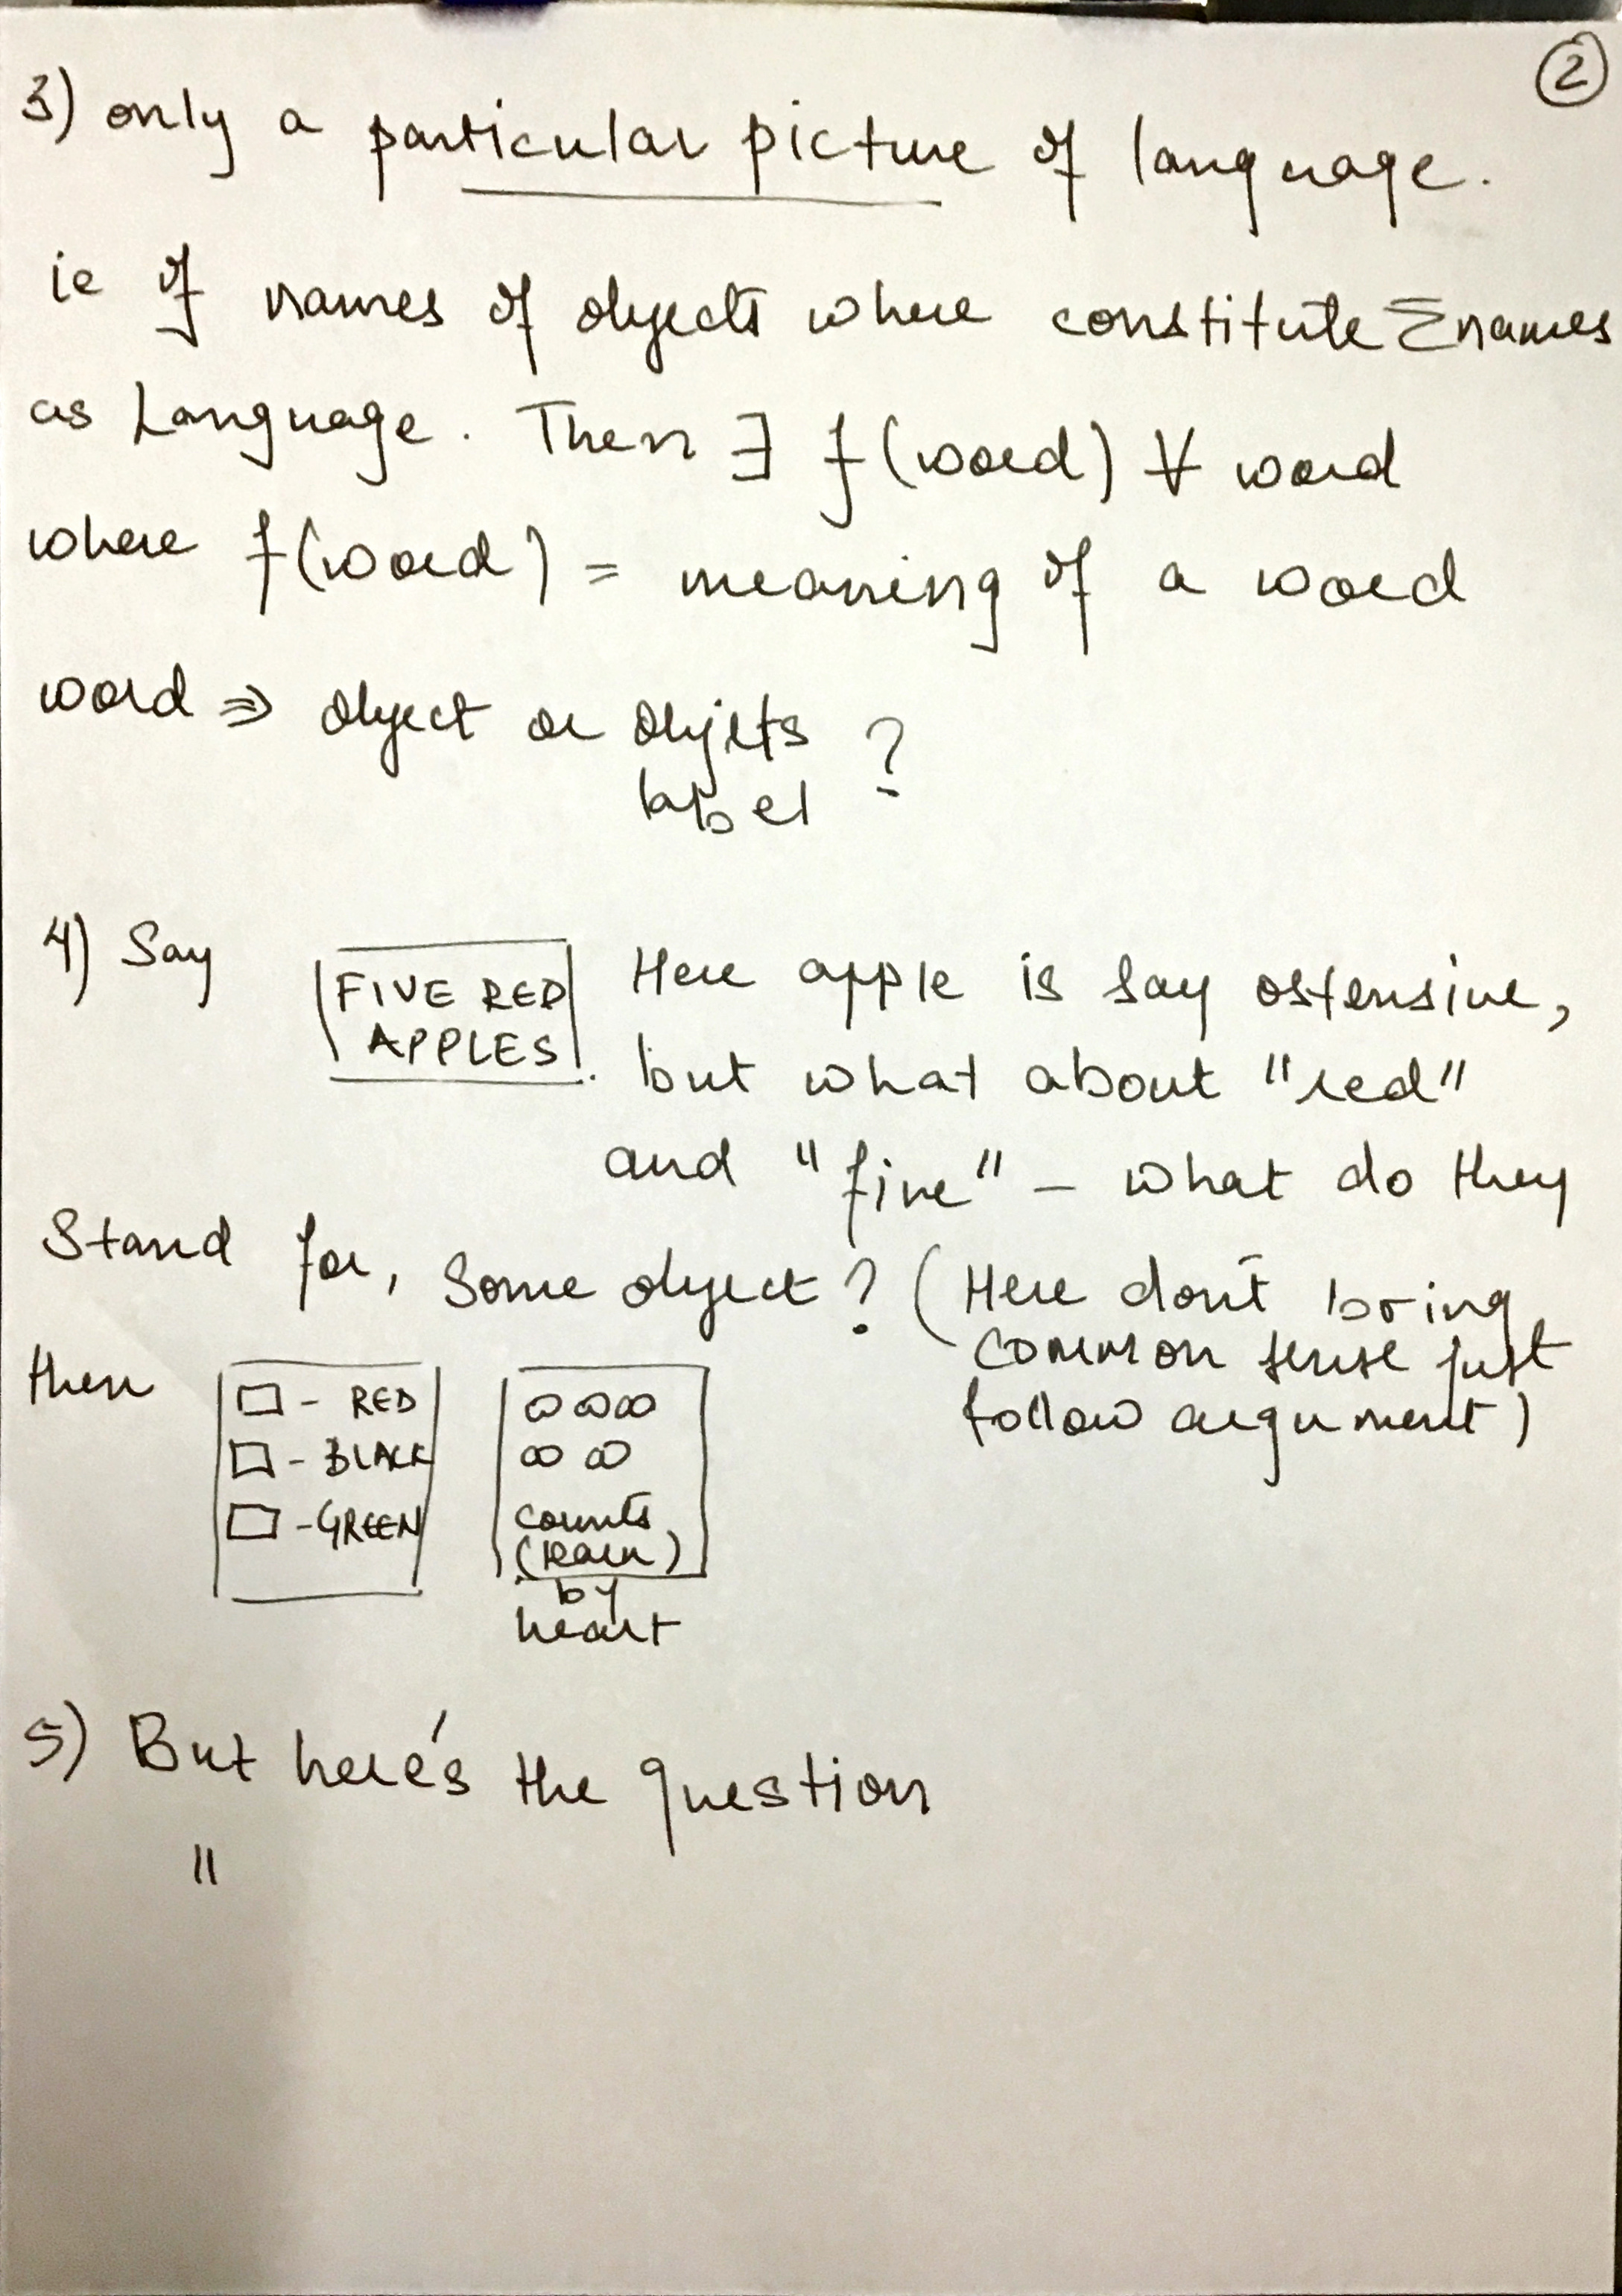 ②
3) only a particular picture of language.
ie of names of objects where constitute Σnames
as Language. Then ∃ f(word) ∀ word
where f(word) = meaning of a word
word ⇒ object or objects ?
label
4) Say FIVE RED Here apple is say ostensive,
APPLES. but what about "red"
and "five" – what do they
Stand for, Some object? (Here don't bring
common sense just
follow argument)
then
□ - RED
□ - BLACK
□ - GREEN
counts
(learn)
by
heart
5) But here's the question
"